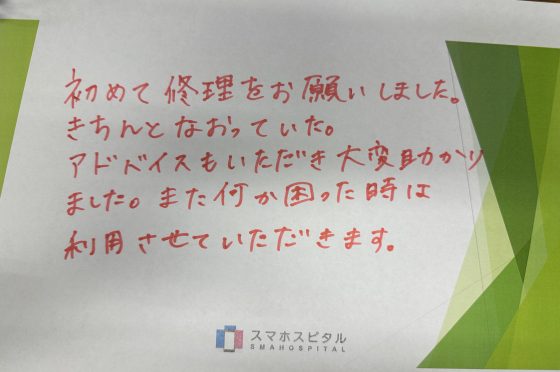 初めて修理をお願いしました。
きちんとなおっていた。
アドバイスもいただき大変助かり
ました。また何か困った時は
利用させていただきます。
スマホスピタル
SMAHOSPITAL